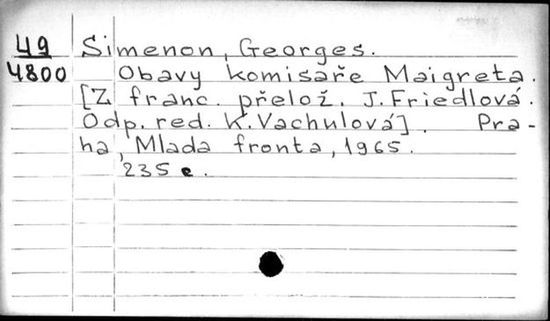 49 Simenon, Georges.
4800 Obavy komisaře Maigreta.
[Z franc. přelož. J. Friedlová.
Odp. red. K. Vachulová]. Pra-
ha, Mlada fronta, 1965.
235 c.